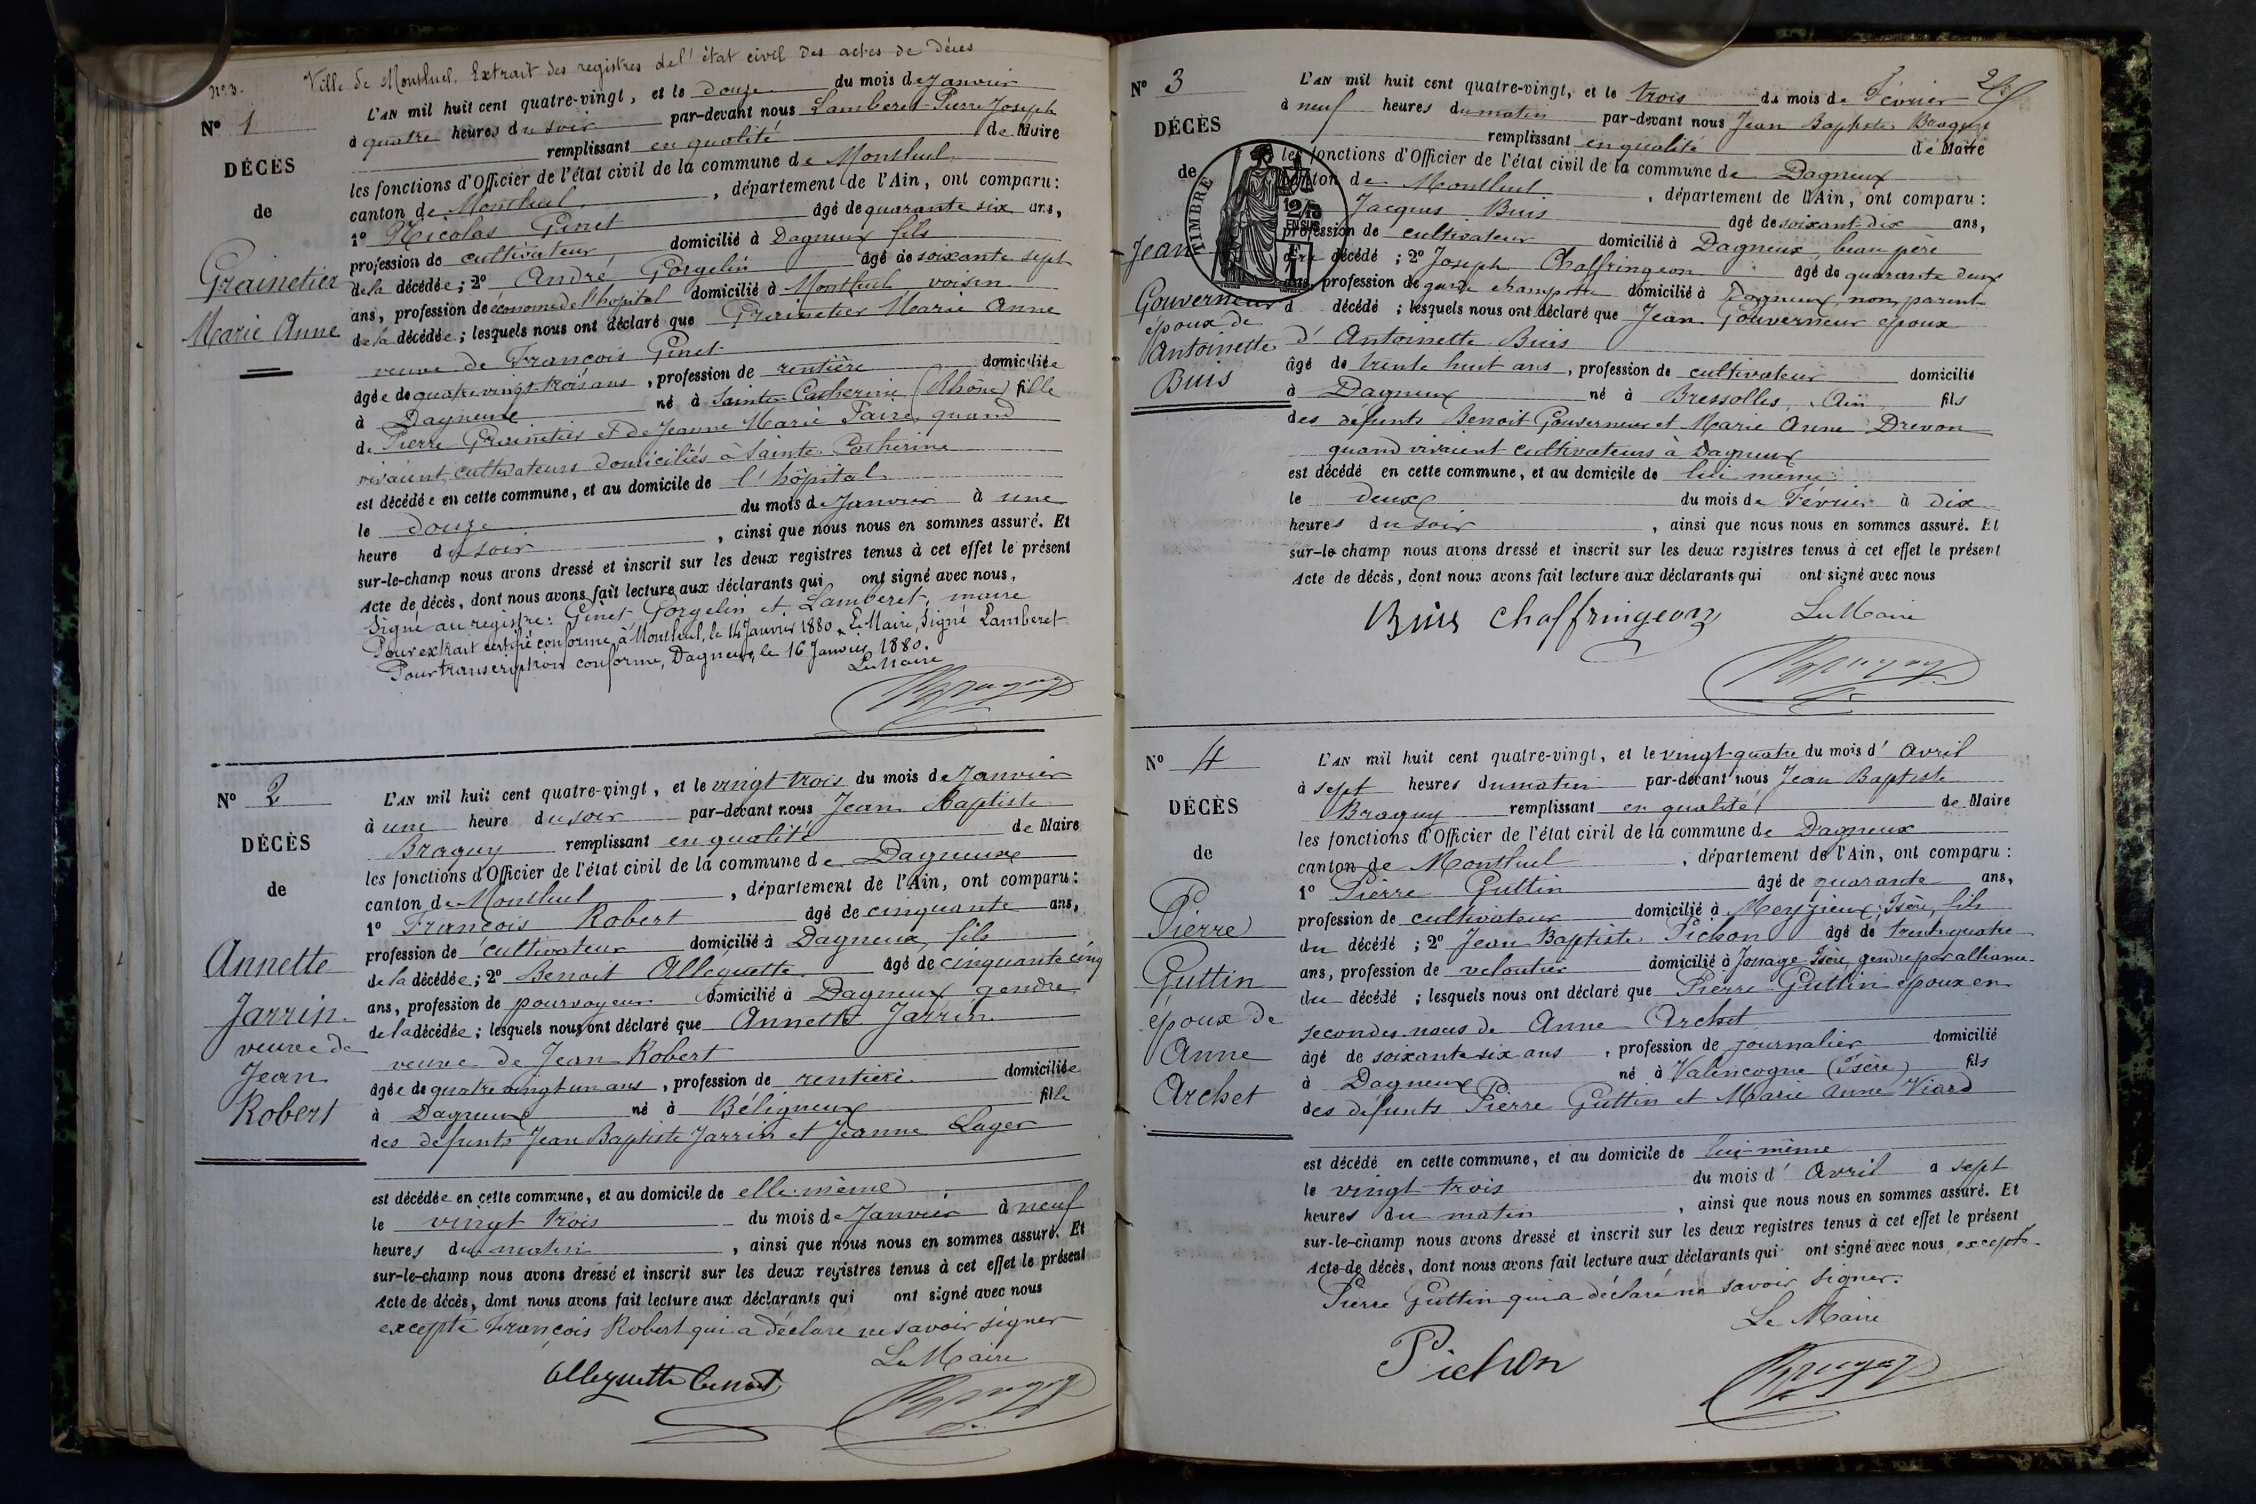 Nº 3. Ville de Montluel. Extrait des registres de l'état civil des actes de décès
Nº 1
DÉCÈS
de
Grainetier
Marie Anne
L'AN mil huit cent quatre-vingt, et le douze du mois de Janvier
à quatre heures du soir par-devant nous Lamberet Pierre Joseph
remplissant en qualité de Maire
les fonctions d'Officier de l'état civil de la commune de Montluel
canton de Montluel, département de l'Ain, ont comparu :
1º Nicolas Ginet âgé de quarante six ans,
profession de cultivateur domicilié à Dagneux fils
de la décédée ; 2º André Gorgelin âgé de soixante sept
ans, profession de économe de l'hôpital domicilié à Montluel voisin
de la décédée ; lesquels nous ont déclaré que Grainetier Marie Anne
veuve de François Ginet
âgée de quatre vingt trois ans, profession de rentière domiciliée
à Dagneux né à Sainte Catherine (Rhône) fille
de Pierre Grainetier et de Jeanne Marie Faire, quand
vivaient cultivateurs domiciliés à Sainte Catherine
est décédée en cette commune, et au domicile de l'hôpital
le douze du mois de Janvier à une
heure du soir, ainsi que nous nous en sommes assuré. Et
sur-le-champ nous avons dressé et inscrit sur les deux registres tenus à cet effet le présent
Acte de décès, dont nous avons fait lecture aux déclarants qui ont signé avec nous.
Signé au registre : Ginet, Gorgelin et Lamberet, maire
Pour extrait certifié conforme, à Montluel, le 14 Janvier 1880. Le Maire, Signé Lamberet
Pour transcription conforme, Dagneux, le 16 Janvier 1880.
Le Maire
Nº 2
DÉCÈS
de
Annette
Jarrin
veuve de
Jean
Robert
L'AN mil huit cent quatre-vingt, et le vingt trois du mois de Janvier
à une heure du soir par-devant nous Jean Baptiste
Braguy remplissant en qualité de Maire
les fonctions d'Officier de l'état civil de la commune de Dagneux
canton de Montluel, département de l'Ain, ont comparu :
1º François Robert âgé de cinquante ans,
profession de cultivateur domicilié à Dagneux, fils
de la décédée ; 2º Benoit Alléguette âgé de cinquante cinq
ans, profession de pourvoyeur domicilié à Dagneux gendre
de la décédée ; lesquels nous ont déclaré que Annette Jarrin
veuve de Jean Robert
âgée de quatre vingt un ans, profession de rentière domiciliée
à Dagneux né à Béligneux fille
des défunts Jean Baptiste Jarrin et Jeanne Lager
est décédée en cette commune, et au domicile de elle même
le vingt trois du mois de Janvier à neuf
heures du matin, ainsi que nous nous en sommes assuré. Et
sur-le-champ nous avons dressé et inscrit sur les deux registres tenus à cet effet le présent
Acte de décès, dont nous avons fait lecture aux déclarants qui ont signé avec nous
excepté François Robert qui a déclaré ne savoir signer
Le Maire
Alleguette benoit
Nº 3
DÉCÈS
de
Jean
Gouverneur
époux de
Antoinette
Buis
TIMBRE
L'AN mil huit cent quatre-vingt, et le trois du mois de Février
à neuf heures du matin par-devant nous Jean Baptiste Braguy
remplissant en qualité de Maire
les fonctions d'Officier de l'état civil de la commune de Dagneux
canton de Montluel, département de l'Ain, ont comparu :
Jacques Buis âgé de soixant-dix ans,
profession de cultivateur domicilié à Dagneux, beau père
décédé ; 2º Joseph Chaffringeon âgé de quarante deux
profession de garde champêtre domicilié à Dagneux, non parent
d décédé ; lesquels nous ont déclaré que Jean Gouverneur époux
d'Antoinette Buis
âgé de trente huit ans, profession de cultivateur domicilié
à Dagneux né à Bressolles, Ain fils
des défunts Benoit Gouverneur et Marie Anne Drevon
quand vivaient cultivateurs à Dagneux
est décédé en cette commune, et au domicile de lui même
le deux du mois de Février à dix
heures du soir, ainsi que nous nous en sommes assuré. Et
sur-le champ nous avons dressé et inscrit sur les deux registres tenus à cet effet le présent
Acte de décès, dont nous avons fait lecture aux déclarants qui ont signé avec nous
Buis Chaffringeon Le Maire
Nº 4
DÉCÈS
de
Pierre
Guttin
époux de
Anne
Archet
L'AN mil huit cent quatre-vingt, et le vingt quatre du mois d'avril
à sept heures du matin par-devant nous Jean Baptiste
Braguy remplissant en qualité de Maire
les fonctions d'Officier de l'état civil de la commune de Dagneux
canton de Montluel, département de l'Ain, ont comparu :
1º Pierre Guttin âgé de quarante ans,
profession de cultivateur domicilié à Meyzieux, Isère, fils
du décédé ; 2º Jean Baptiste Pichon âgé de trente quatre
ans, profession de veloutier domicilié à Jonage Isère, gendre par alliance
du décédé ; lesquels nous ont déclaré que Pierre Guttin époux en
secondes noces de Anne Archet
âgé de soixante six ans, profession de journalier domicilié
à Dagneux né à Valencogne (Isère) fils
des défunts Pierre Guttin et Marie Anne Viard
est décédé en cette commune, et au domicile de lui-même
le vingt trois du mois d'avril à sept
heures du matin, ainsi que nous nous en sommes assuré. Et
sur-le-champ nous avons dressé et inscrit sur les deux registres tenus à cet effet le présent
Acte de décès, dont nous avons fait lecture aux déclarants qui ont signé avec nous, excepté
Pierre Guttin qui a déclaré ne savoir signer.
Le Maire
Pichon